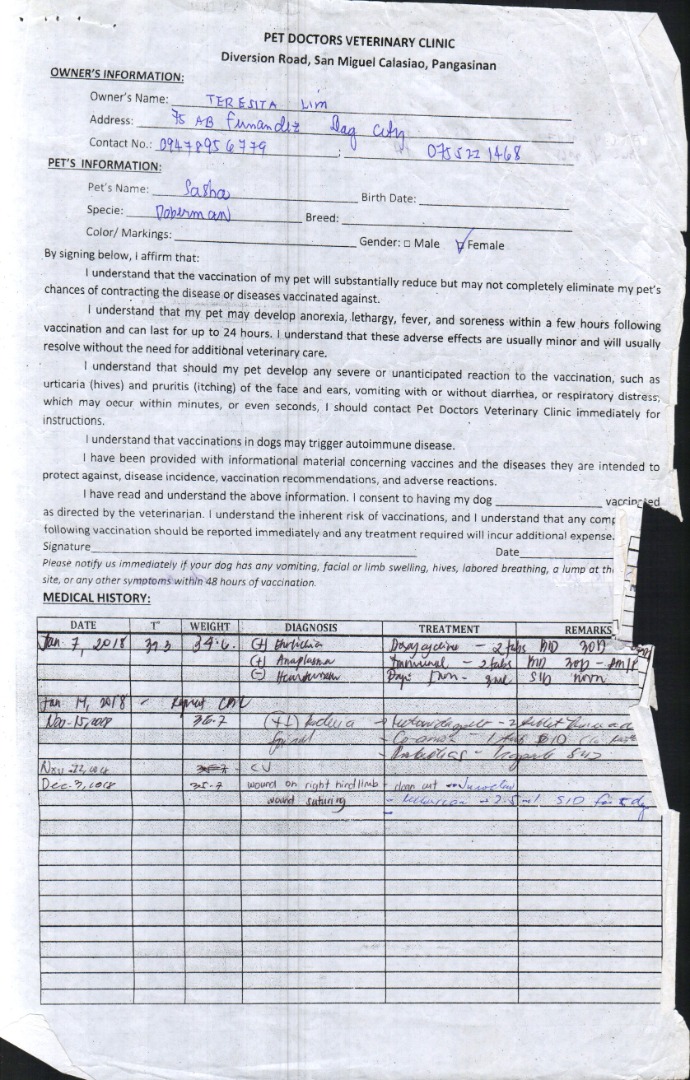 PET DOCTORS VETERINARY CLINIC
Diversion Road, San Miguel Calasiao, Pangasinan
OWNER'S INFORMATION:
Owner's Name: TERESITA LIM
Address: 75 AB Fernandez Dag City
Contact No.: 09478956779 ; 075522 1468
PET'S INFORMATION:
Pet's Name: Sasha Birth Date:
Specie: Doberman Breed:
Color/ Markings: Gender: □ Male ☑ Female
By signing below, I affirm that:
I understand that the vaccination of my pet will substantially reduce but may not completely eliminate my pet's
chances of contracting the disease or diseases vaccinated against.
I understand that my pet may develop anorexia, lethargy, fever, and soreness within a few hours following
vaccination and can last for up to 24 hours. I understand that these adverse effects are usually minor and will usually
resolve without the need for additional veterinary care.
I understand that should my pet develop any severe or unanticipated reaction to the vaccination, such as
urticaria (hives) and pruritis (itching) of the face and ears, vomiting with or without diarrhea, or respiratory distress,
which may occur within minutes, or even seconds, I should contact Pet Doctors Veterinary Clinic immediately for
instructions.
I understand that vaccinations in dogs may trigger autoimmune disease.
I have been provided with informational material concerning vaccines and the diseases they are intended to
protect against, disease incidence, vaccination recommendations, and adverse reactions.
I have read and understand the above information. I consent to having my dog vaccinated
as directed by the veterinarian. I understand the inherent risk of vaccinations, and I understand that any comp
following vaccination should be reported immediately and any treatment required will incur additional expense.
Signature Date
Please notify us immediately if your dog has any vomiting, facial or limb swelling, hives, labored breathing, a lump at the
site, or any other symptoms within 48 hours of vaccination.
MEDICAL HISTORY:
DATE T° WEIGHT DIAGNOSIS TREATMENT REMARKS
Jan. 7, 2018 39.3 34.6. (+) Ehrlichia Doxycycline – 2 tabs BID 30D
(+) Anaplasma – 2 tabs 30D – pm/
(–) Heartworm SID noon
Jan 14, 2018 – Repeat CBC
Nov-15, 2018 36.7
Nov 22, 2018 CV
Dec. 3, 2018 35.7 wound on right hindlimb – clean out
wound suturing 2.5 ml SID for 5 dy